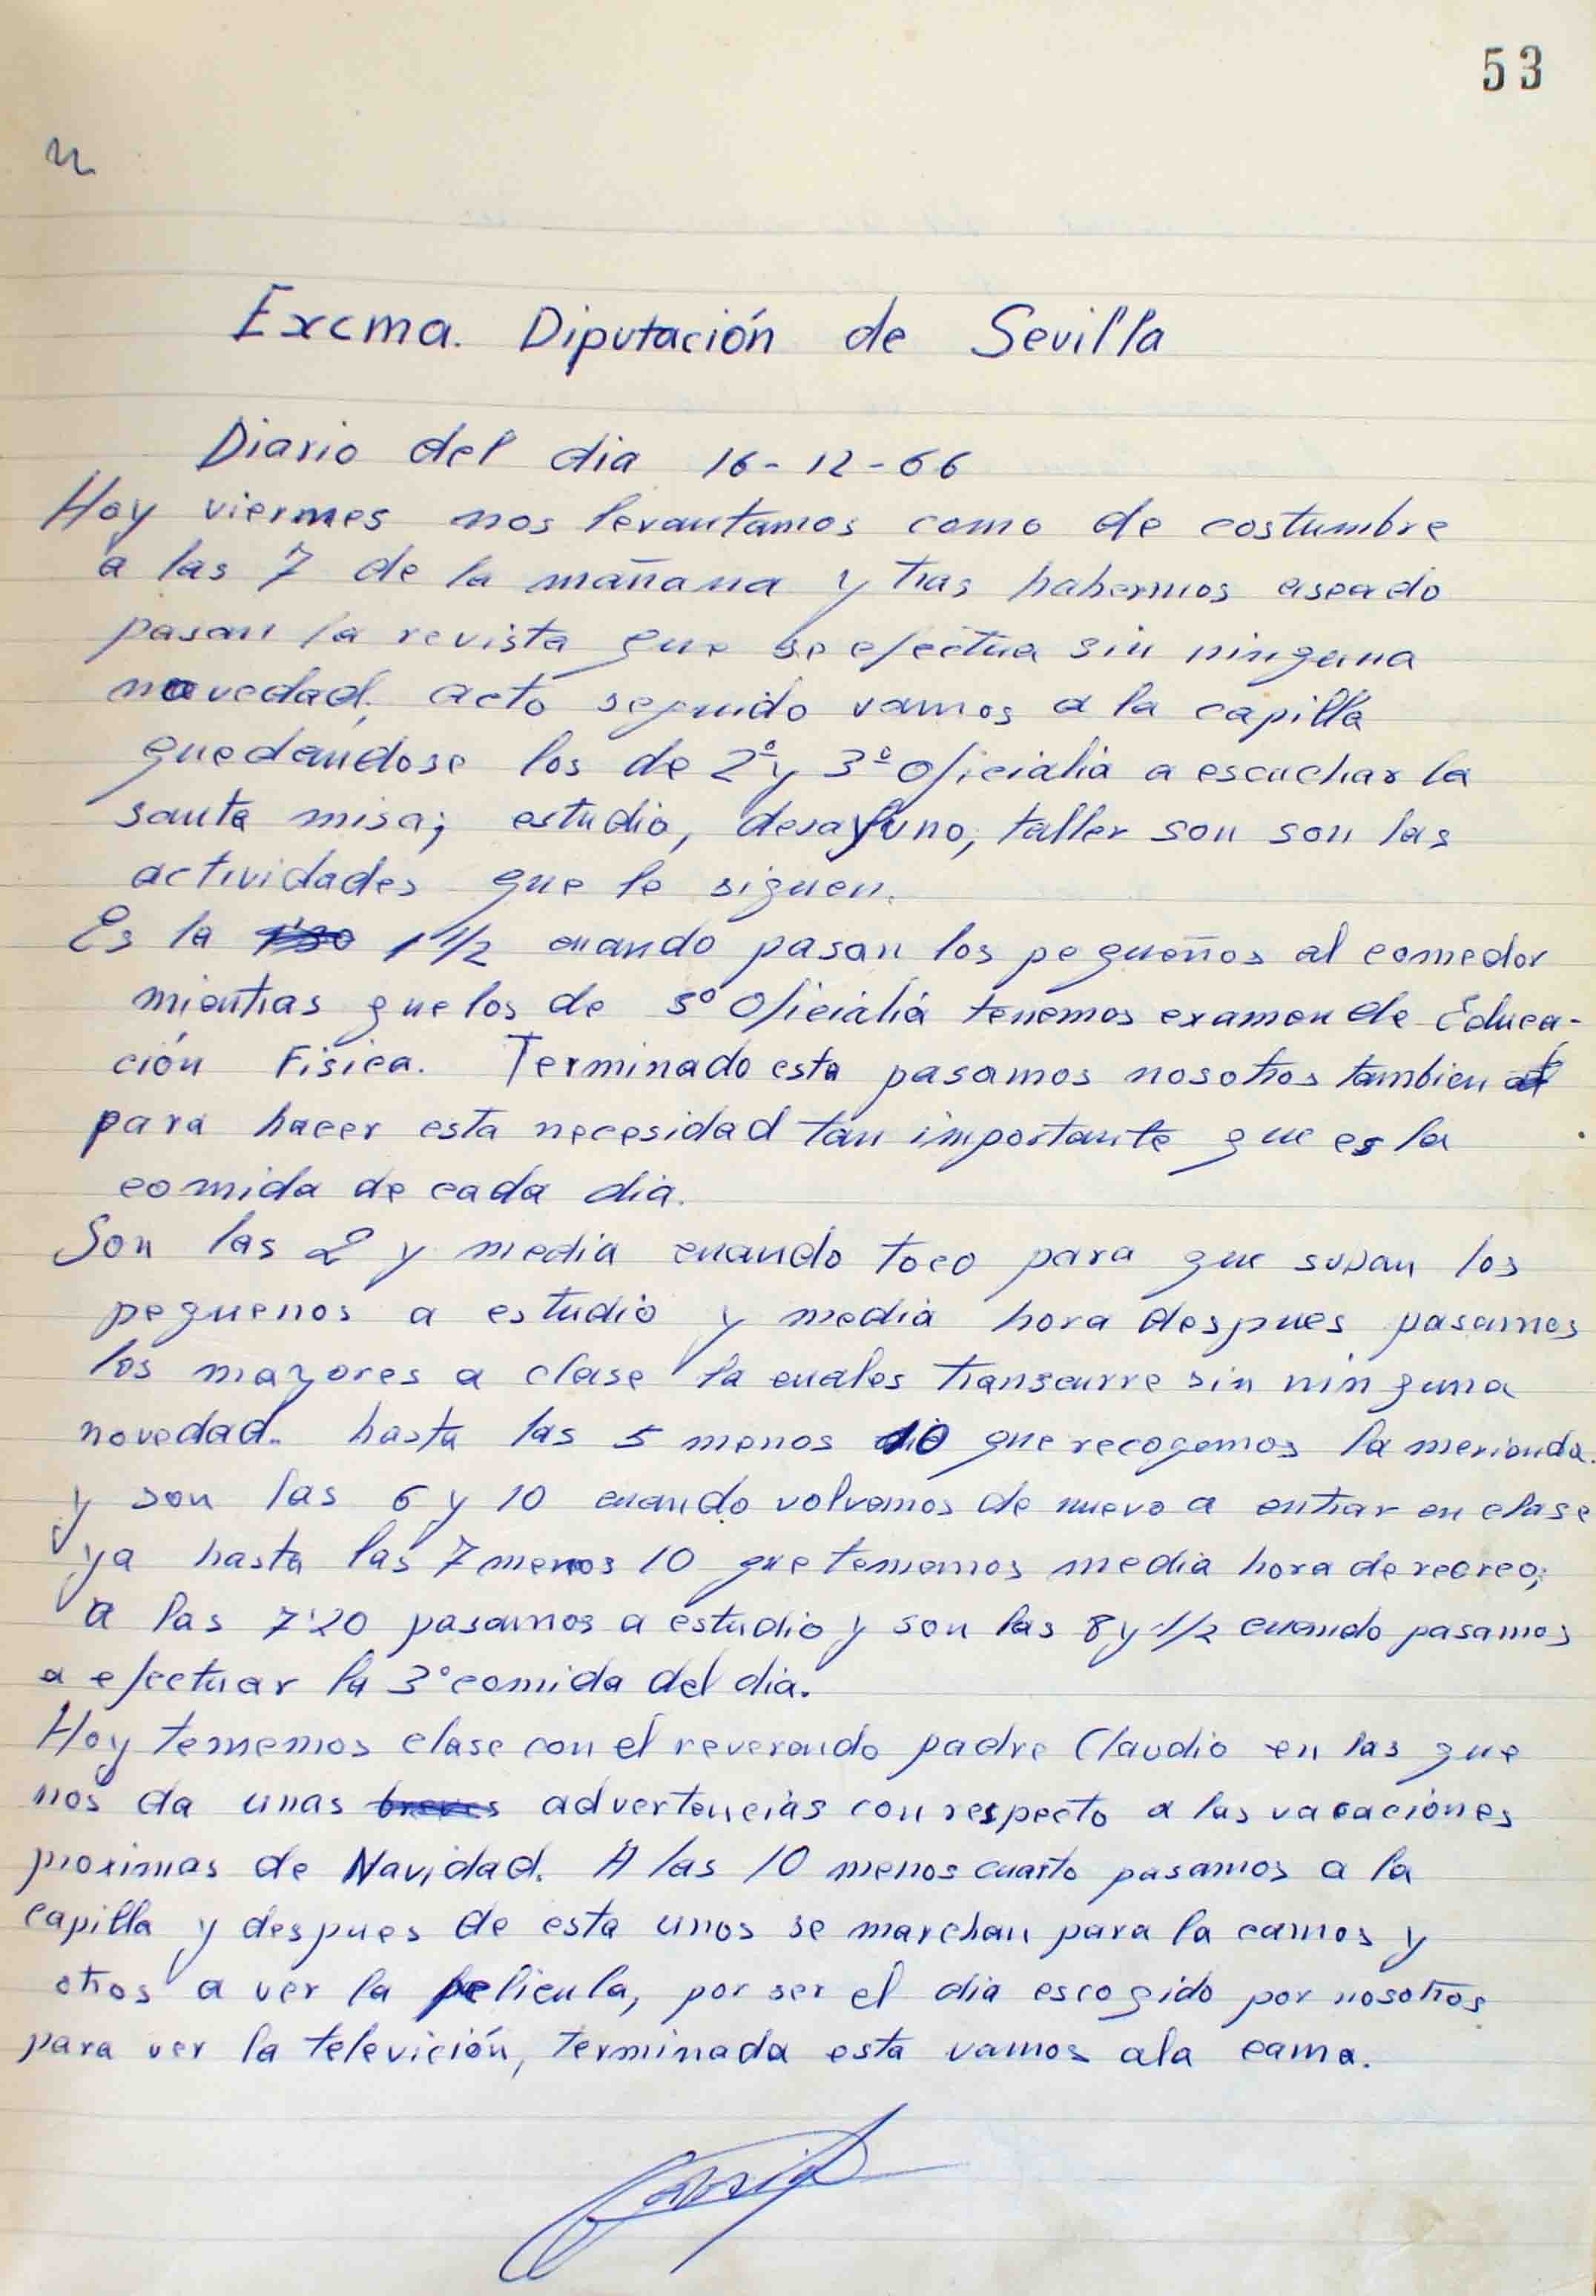 53
Excma. Diputación de Sevilla
Diario del dia 16-12-66
Hoy viernes nos levantamos como de costumbre
a las 7 de la mañana y tras habernos aseado
pasan la revista que se efectua sin ninguna
novedad, acto seguido vamos a la capilla
quedandose los de 2º y 3º oficialia a escuchar la
santa misa; estudio, desayuno, taller son son las
actividades que le siguen.
Es la 1'30 1 1/2 cuando pasan los pequeños al comedor
mientras que los de 3º Oficialia tenemos examen de Educa-
ción Fisica. Terminado esta pasamos nosotros tambien al
para hacer esta necesidad tan importante que es la
comida de cada dia.
Son las 2 y media cuando toco para que suban los
pequenos a estudio y media hora despues pasamos
los mayores a clase la cuales transcurre sin ninguna
novedad. hasta las 5 menos 10 que recogemos la merienda.
y son las 6 y 10 cuando volvemos de nuevo a entrar en clase
ya hasta las 7 menos 10 que tenemos media hora de recreo;
a las 7'20 pasamos a estudio y son las 8 y 1/2 cuando pasamos
a efectuar la 3º comida del dia.
Hoy tenemos clase con el reverendo padre Claudio en las que
nos da unas breves advertencias con respecto a las vacaciones
proximas de Navidad. A las 10 menos cuarto pasamos a la
capilla y despues de esta unos se marchan para la camos y
otros a ver la pelicula, por ser el dia escogido por nosotros
para ver la televición, terminada esta vamos ala cama.